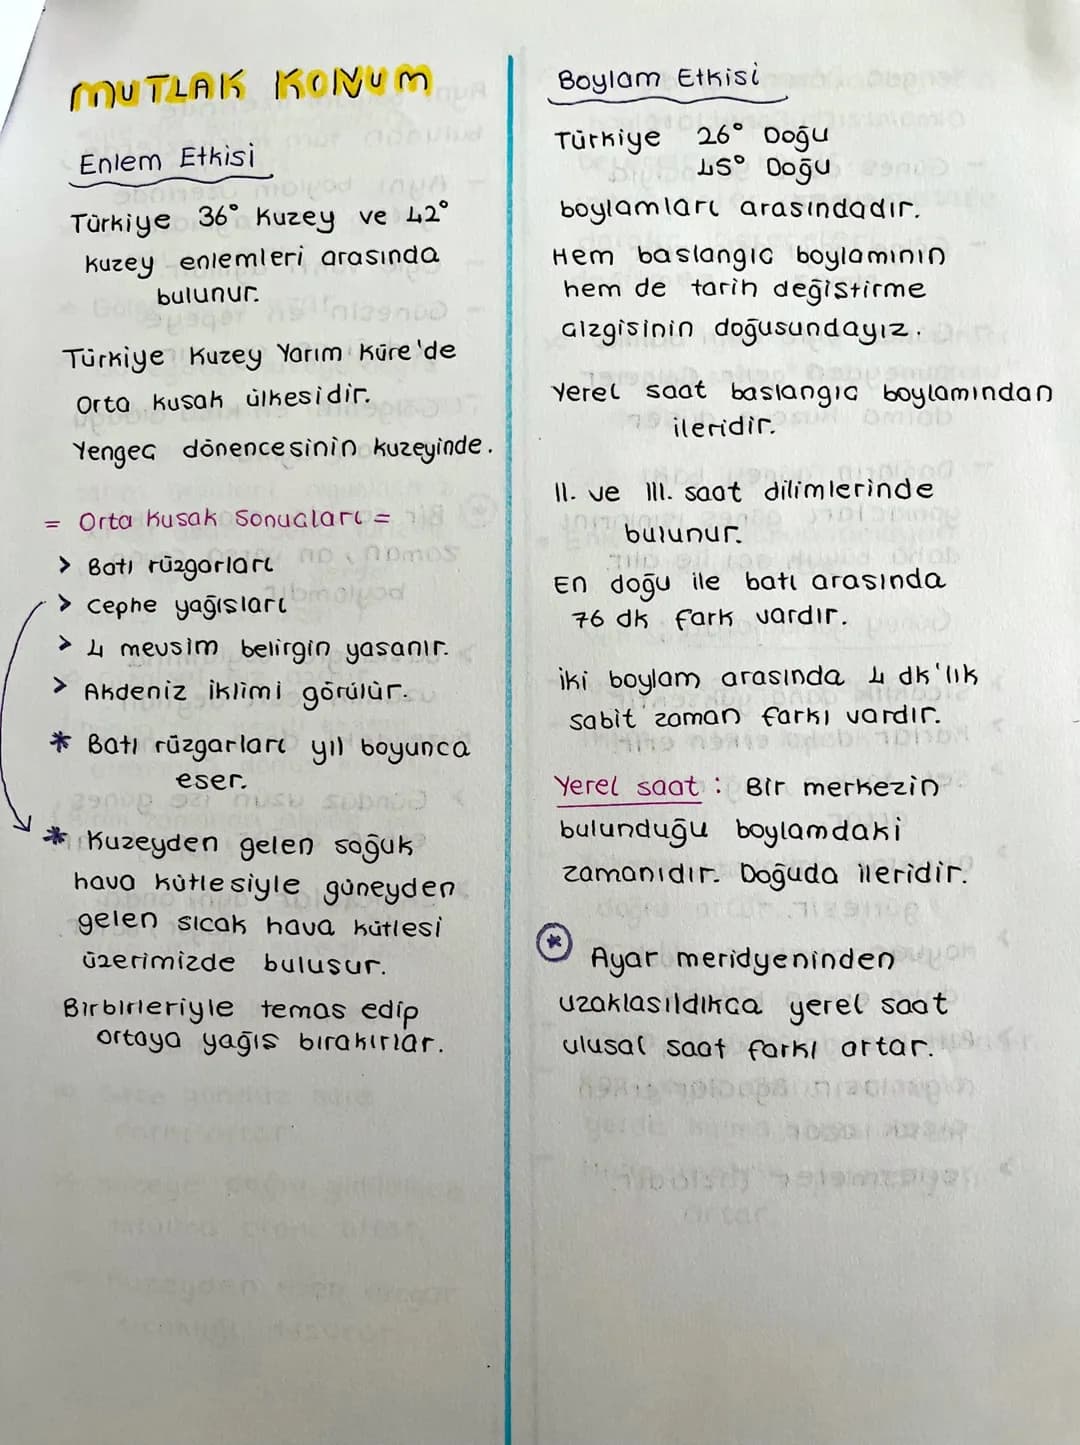 MUTLAK KONUM
Enlem Etkisi
Türkiye 36° Kuzey ve 42°
kuzey enlemleri arasında
bulunur.
Türkiye Kuzey Yarım Küre'de
Orta kusak ülkesidir.
Yengeç dönencesinin kuzeyinde.
= Orta Kusak Sonuçları =
> Batı rüzgarları
> Cephe yağısları
> 4 mevsim belirgin yasanır.
> Akdeniz iklimi görülür.
* Batı rüzgarları yıl boyunca
eser.
* Kuzeyden gelen soğuk
hava kütlesiyle güneyden
gelen sıcak hava kütlesi
üzerimizde buluşur.
Birbirleriyle temas edip
ortaya yağış bırakırlar.
Boylam Etkisi
Türkiye 26° Doğu
45° Doğu
boylamları arasındadır.
Hem baslangıç boylamının
hem de tarih değiştirme
çizgisinin doğusundayız.
Yerel saat baslangıç boylamından
ileridir.
II. ve III. saat dilimlerinde
bulunur.
En doğu ile batı arasında
76 dk fark vardır.
iki boylam arasında 4 dk'lık
sabit zaman farkı vardır.
Yerel saat : Bir merkezin
bulunduğu boylamdaki
zamanıdır. Doğuda ileridir.
* Ayar meridyeninden
uzaklasıldıkça yerel saat
ulusal saat farkı artar.